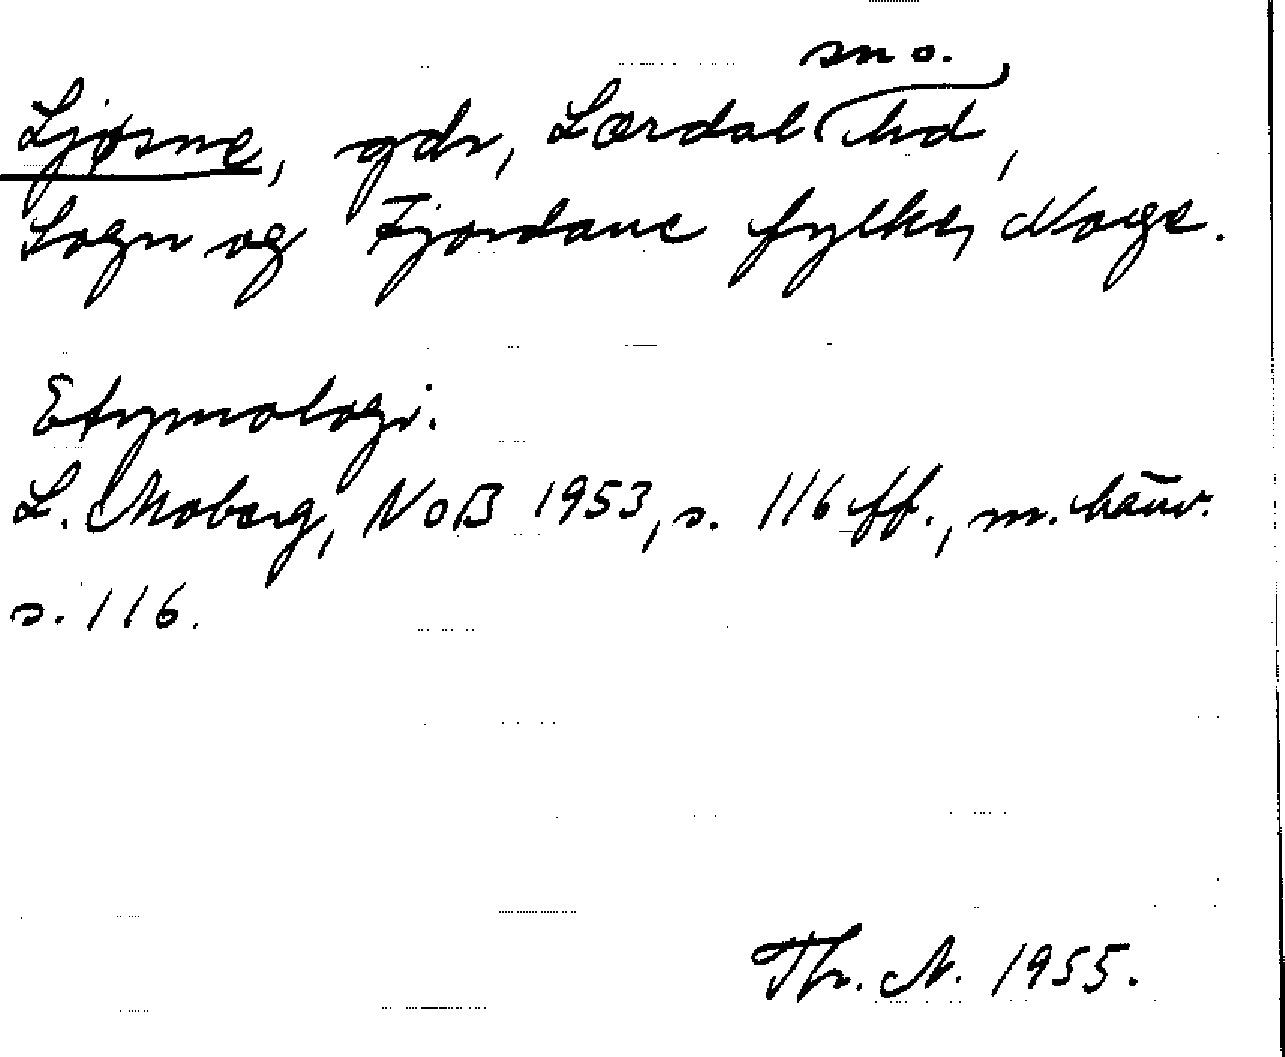 sno.
Ljøsne, gdr, Lærdal hd,
Sogn og Fjordane fylke, Norge.
Etymologi.
L. Moberg, NoB 1953, s. 116 ff., m. hänv.
s. 116.
Th. N. 1955.